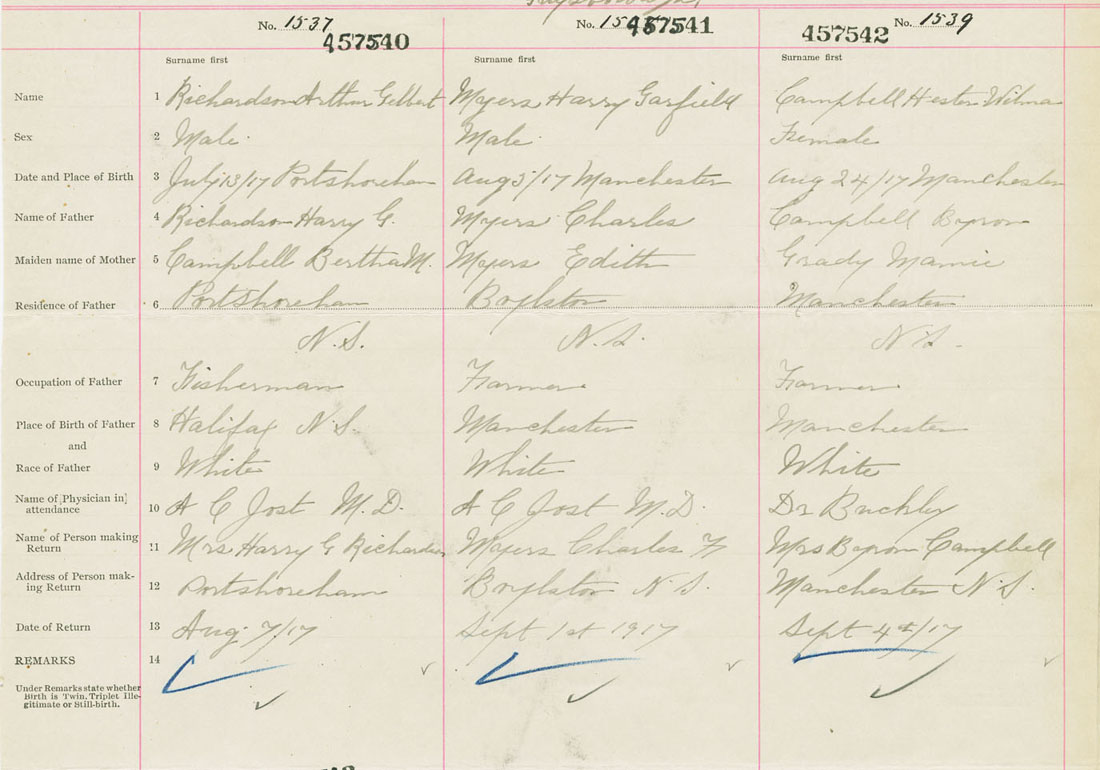 No. 1537 No. 15 No. 1539
457540 457541 457542
Surname first Surname first Surname first
Name 1 Richardson Arthur Gilbert Myers Harry Garfield Campbell Hester Wilma
Sex 2 Male Male Female
Date and Place of Birth 3 July 13/17 Portshoreham Aug 5/17 Manchester Aug 24/17 Manchester
Name of Father 4 Richardson Harry G. Myers Charles Campbell Byron
Maiden name of Mother 5 Campbell Bertha M. Myers Edith Grady Mamie
Residence of Father 6 Portshoreham Boylston Manchester
N.S. N.S. N.S.
Occupation of Father 7 Fisherman Farmer Farmer
Place of Birth of Father 8 Halifax N.S. Manchester Manchester
and
Race of Father 9 White White White
Name of Physician in
attendance 10 A C Jost M.D. A C Jost M.D. Dr Buckley
Name of Person making
Return 11 Mrs Harry G Richardson Myers Charles F Mrs Byron Campbell
Address of Person mak-
ing Return 12 Portshoreham Boylston N.S. Manchester N.S.
Date of Return 13 Aug 7/17 Sept 1st 1917 Sept 4th/17
REMARKS 14
Under Remarks state whether
Birth is Twin, Triplet Ille-
gitimate or Still-birth.